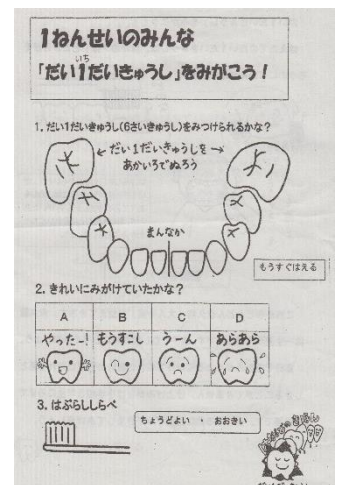 1ねんせいのみんな
いち
「だい1だいきゅうし」をみがこう!
1. だい1だいきゅうし(6さいきゅうし)をみつけられるかな?
← だい1だいきゅうしを →
あかいろでぬろう
まんなか
もうすぐはえる
2. きれいにみがけていたかな?
A B C D
やったー! もうすこし うーん あらあら
3. はぶらししらべ
ちょうどよい ・ おおきい